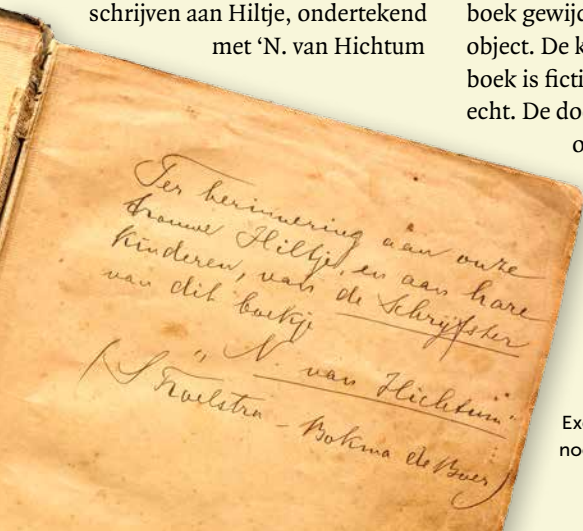 schrijven aan Hiltje, ondertekend
met ‘N. van Hichtum
boek gewijd
object. De k
boek is ficti
echt. De doo
o
Ter herinnering aan onze
trouwe Hiltje, en aan hare
kinderen, van de Schrijfster
van dit boekje
„N. van Hichtum”
(S Troelstra - Bokma de Boer)
Exe
noo